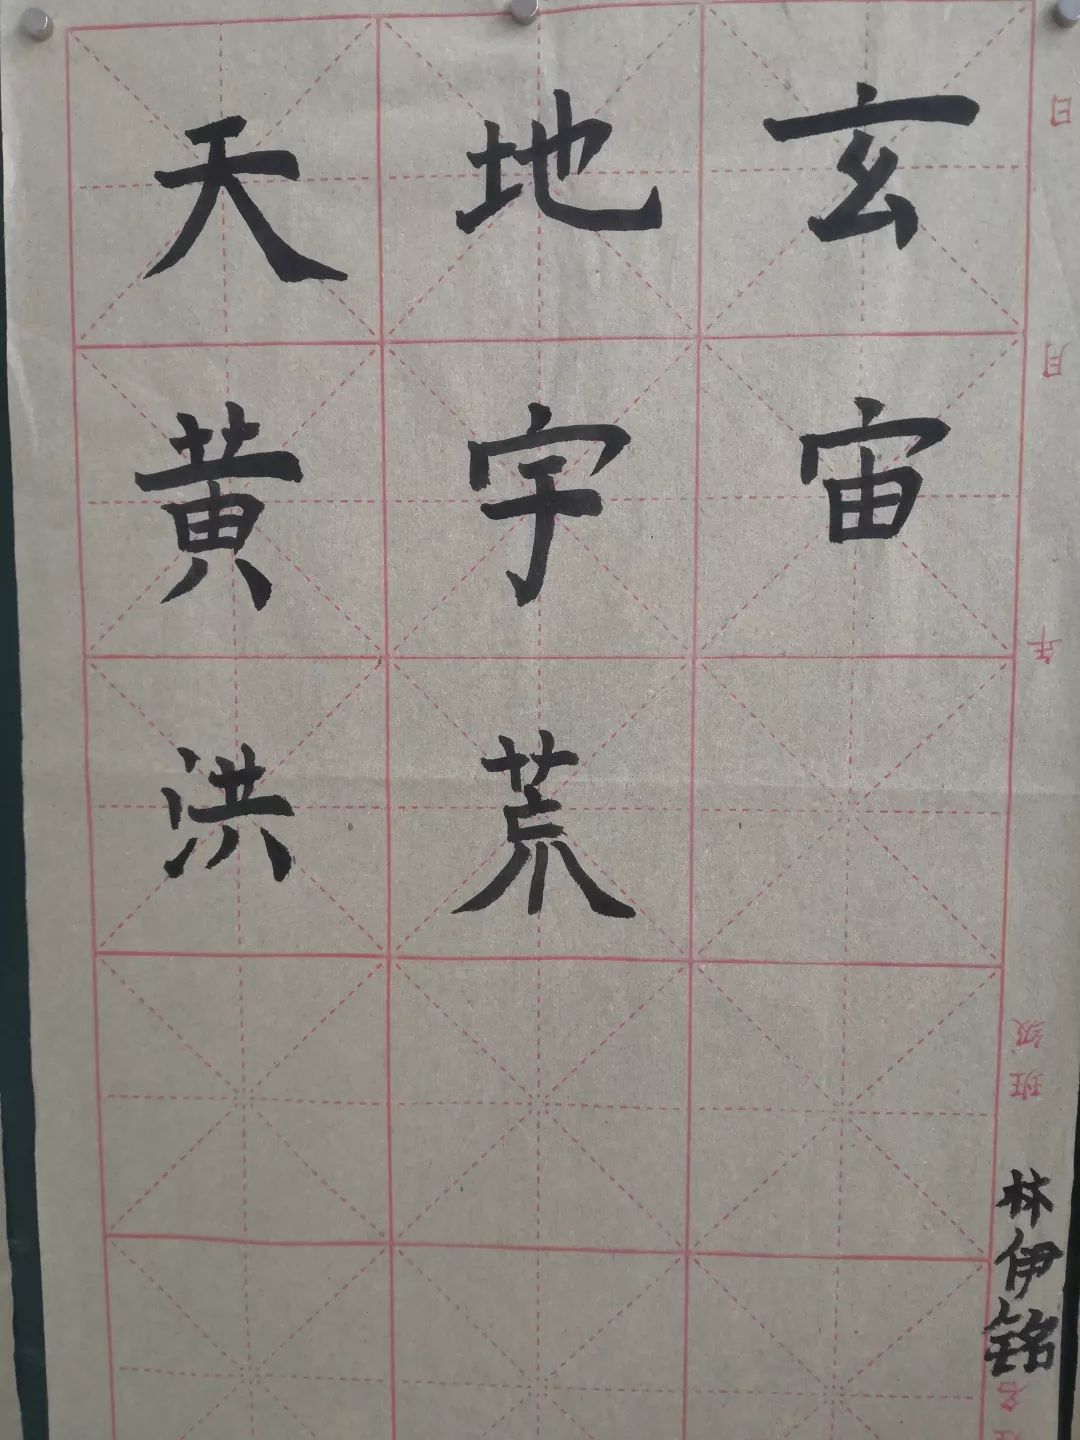 天地玄
黄宇宙
洪荒
林伊铭
日
月
年
级
班
名
姓